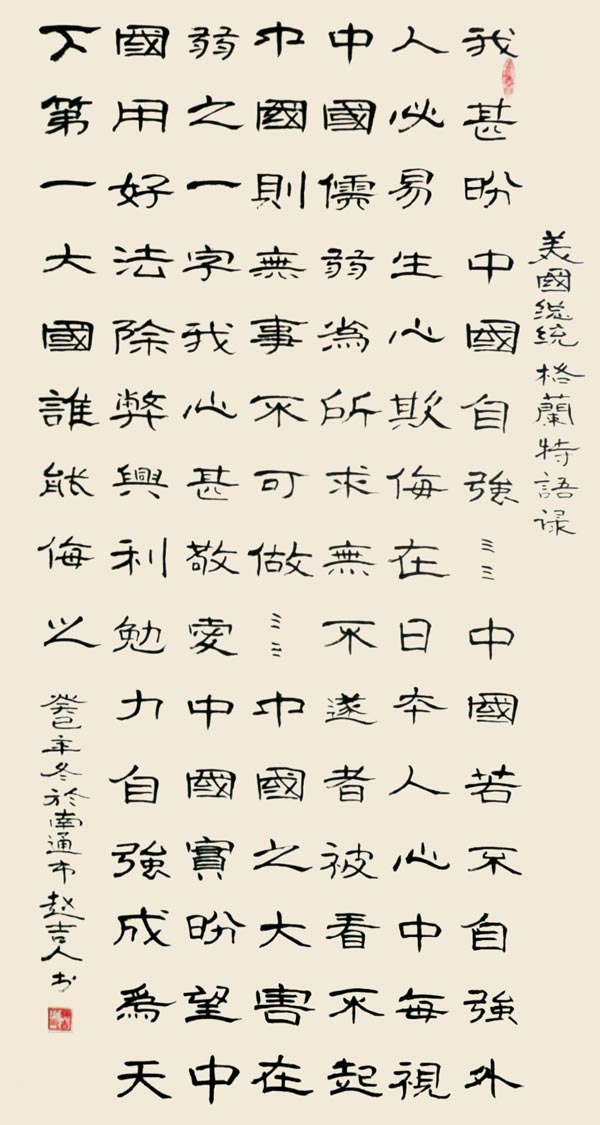 美國總統 格蘭特語禄
我甚盼中國自強……中國若不自強外
人必易生心欺侮在日本人心中每視
中國儒弱為所求無不遂者被看不起
中國則無事不可做……中國之大害在
弱之一字我心甚敬愛中國實盼望中
國用好法除弊興利勉力自強成爲天
下第一大國誰能侮之
癸巳年冬於南通市趙吉人书